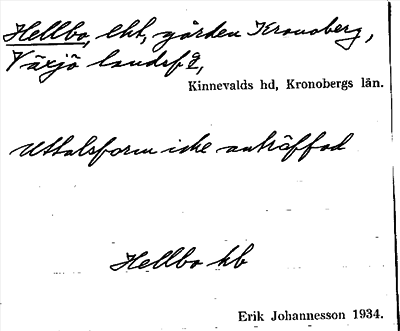 Hellbo, lht, gården Kronoberg,
Växjö landsf.
Kinnevalds hd, Kronobergs län.
Uttalsform icke anträffad
Hellbo hb
Erik Johannesson 1934.